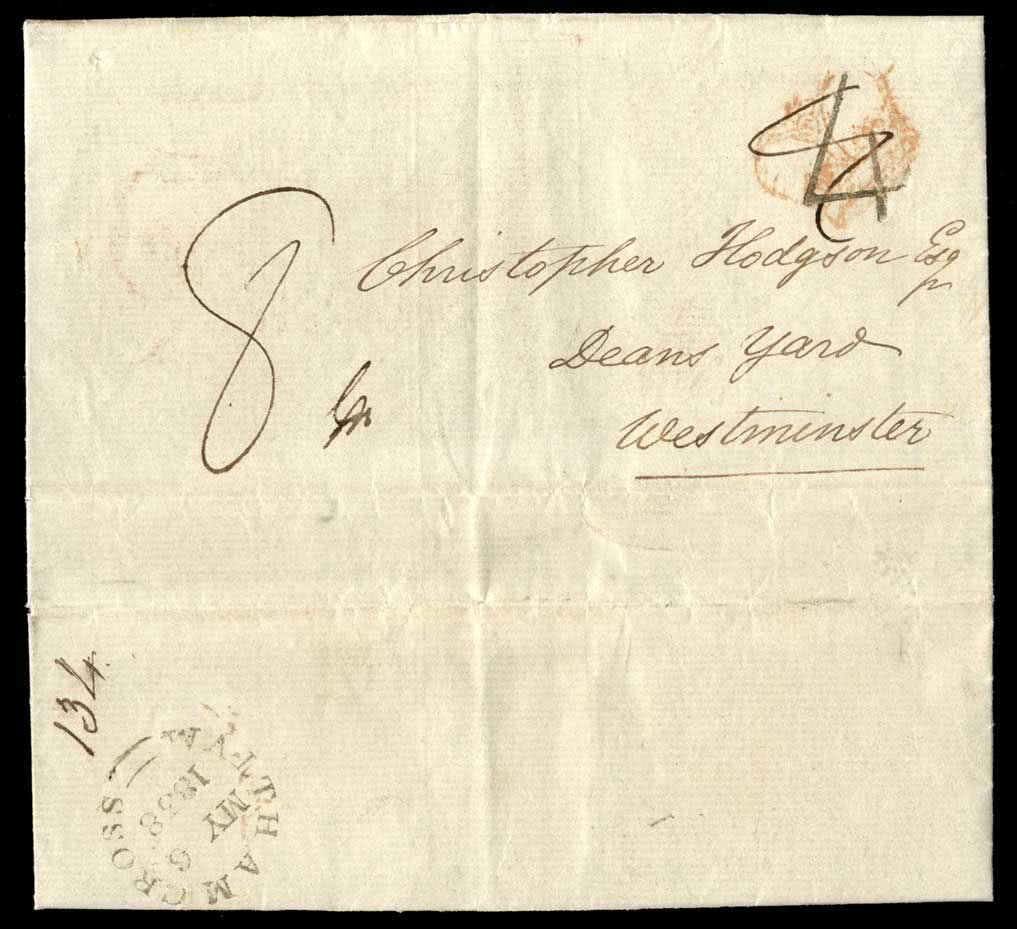 4
8
Christopher Hodgson Esqr
Deans Yard
Westminster
134
WALTHAM CROSS
MY 6
1838